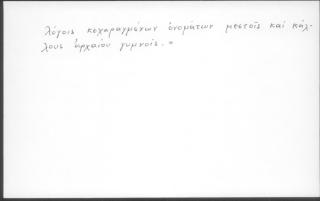 λόγοις κεχαραγμένων ὀνομάτων μεστοῖς καὶ κάλ-
λους ἀρχαίου γυμνοῖς.